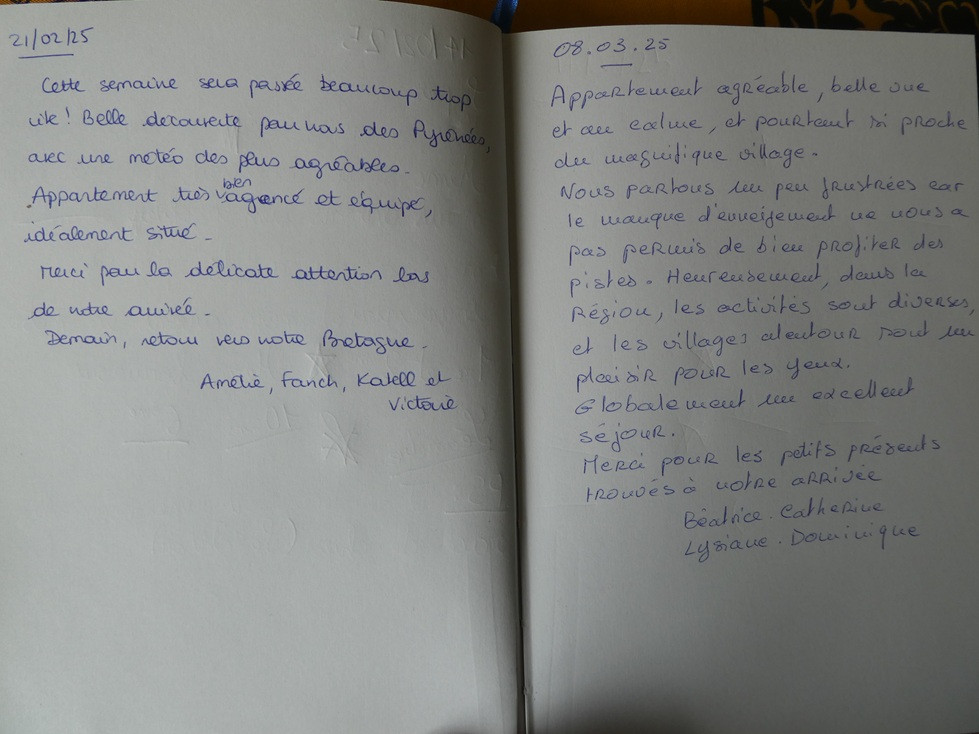 21/02/25
Cette semaine sera passée beaucoup trop
vite! Belle découverte pour nous des Pyrénées,
avec une météo des plus agréables.
Appartement très bien agencé et équipé,
idéalement situé.
Merci pour la délicate attention lors
de notre arrivée.
Demain, retour vers notre Bretagne.
Amélie, Fanch, Katell et
Victorie
08.03.25
Appartement agréable, belle vue
et au calme, et pourtant si proche
du magnifique village.
Nous partons un peu frustrées car
le manque d'enneigement ne nous a
pas permis de bien profiter des
pistes. Heureusement, dans la
Région, les activités sont diverses,
et les villages alentour sont un
plaisir pour les yeux.
Globalement un excellent
séjour.
Merci pour les petits présents
trouvés à notre arrivée
Béatrice. Catherine
Lysiane. Dominique